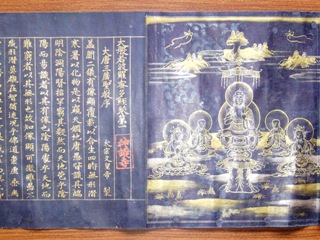 大般若波羅蜜多經卷第一
大唐三藏聖教序
太宗文皇帝 製
神護寺
蓋聞二儀有像顯覆載以含生四時無形潛
寒暑以化物是以窺天鑑地庸愚皆識其端
明陰洞陽賢哲罕窮其數然而天地苞乎陰
陽而易識者以其有像也陰陽處乎天地而
難窮者以其無形也故知像顯可徵雖愚不
惑形潛莫覩在智猶迷況乎佛道崇虛乘